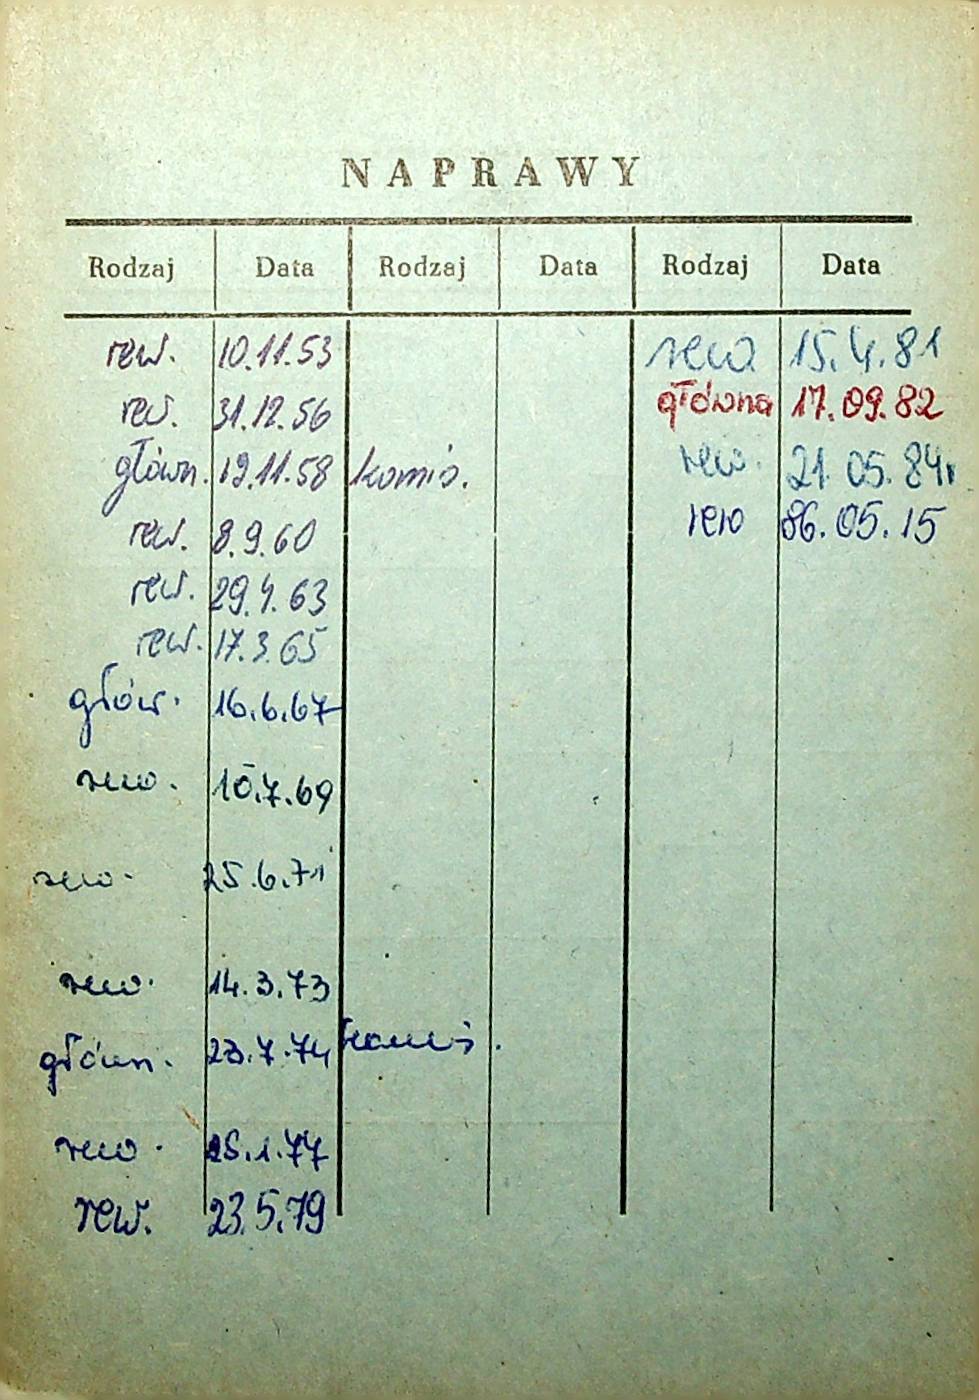 NAPRAWY
Rodzaj Data Rodzaj Data Rodzaj Data
rew. 10.11.53 rew 15.4.81
rew. 31.12.56 główna 17.09.82
główn. 19.11.58 komis. rew. 21.05.84r
rew. 8.9.60 rew 86.05.15
rew. 29.4.63
rew. 17.3.65
głów. 16.6.67
rew. 10.7.69
rew. 25.6.71
rew. 14.3.73
główn. 23.7.74 komis.
rew. 25.1.77
rew. 23.5.79